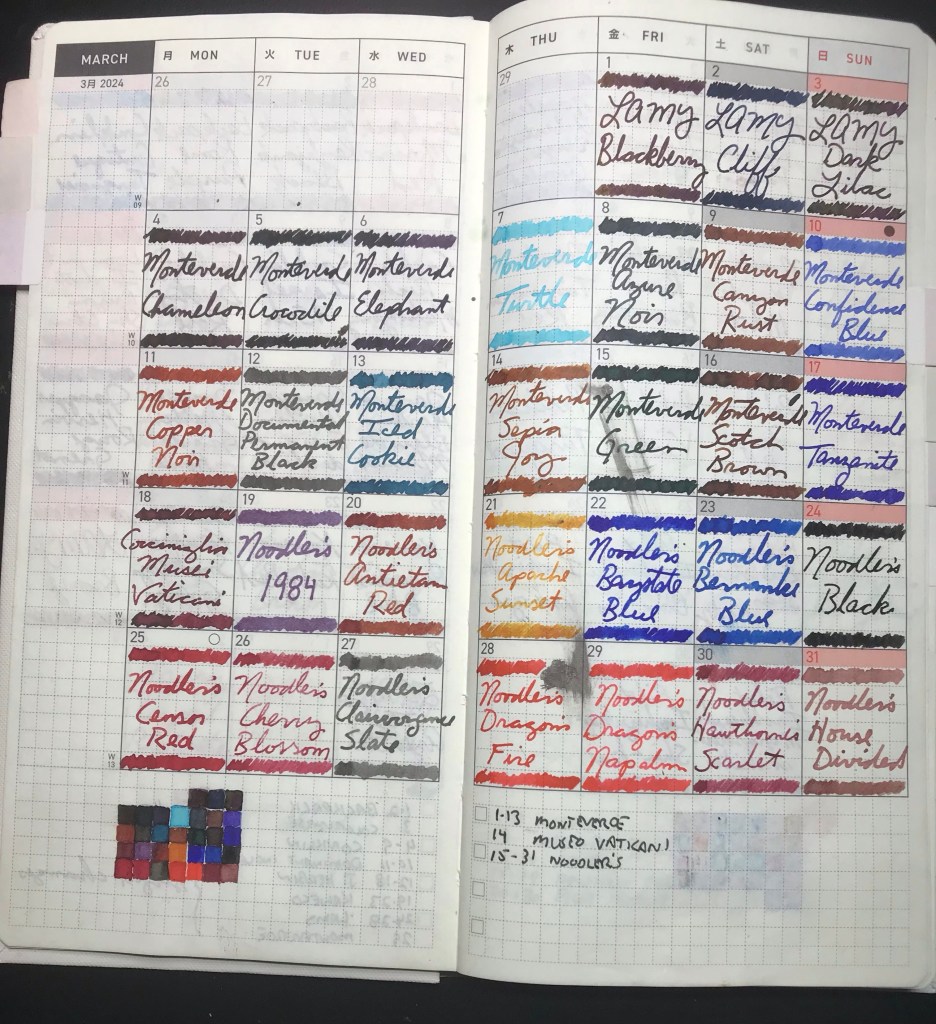 MARCH
月 MON
火 TUE
水 WED
木 THU
金 FRI
土 SAT
日 SUN
3月 2024
26
27
28
29
1
LAMY
Blackberry
2
LAMY
Cliff
3
LAMY
Dark
Lilac
W
09
4
Monteverde
Chameleon
5
Monteverde
Crocodile
6
Monteverde
Elephant
7
Monteverde
Turtle
8
Monteverde
Azure
Noir
9
Monteverde
Canyon
Rust
10
Monteverde
Confidence
Blue
W
10
11
Monteverde
Copper
Noir
12
Monteverde
Documental
Permanent
Black
13
Monteverde
Iced
Cookie
14
Monteverde
Sepia
Joy
15
Monteverde
Green
16
Monteverde
Scotch
Brown
17
Monteverde
Tanzanite
W
11
18
Cocciniglia
Musei
Vaticani
19
Noodler's
1984
20
Noodler's
Antietam
Red
21
Noodler's
Apache
Sunset
22
Noodler's
Baystate
Blue
23
Noodler's
Bernanke
Blue
24
Noodler's
Black
W
12
25
Noodler's
Censor
Red
26
Noodler's
Cherry
Blossom
27
Noodler's
Slate
28
Noodler's
Dragon's
Fire
29
Noodler's
Dragon's
Napalm
30
Noodler's
Hawthorne's
Scarlet
31
Noodler's
House
Divided
W
13
1-13 MONTEVERDE
14 MUSEO VATICANI
15-31 NOODLER'S